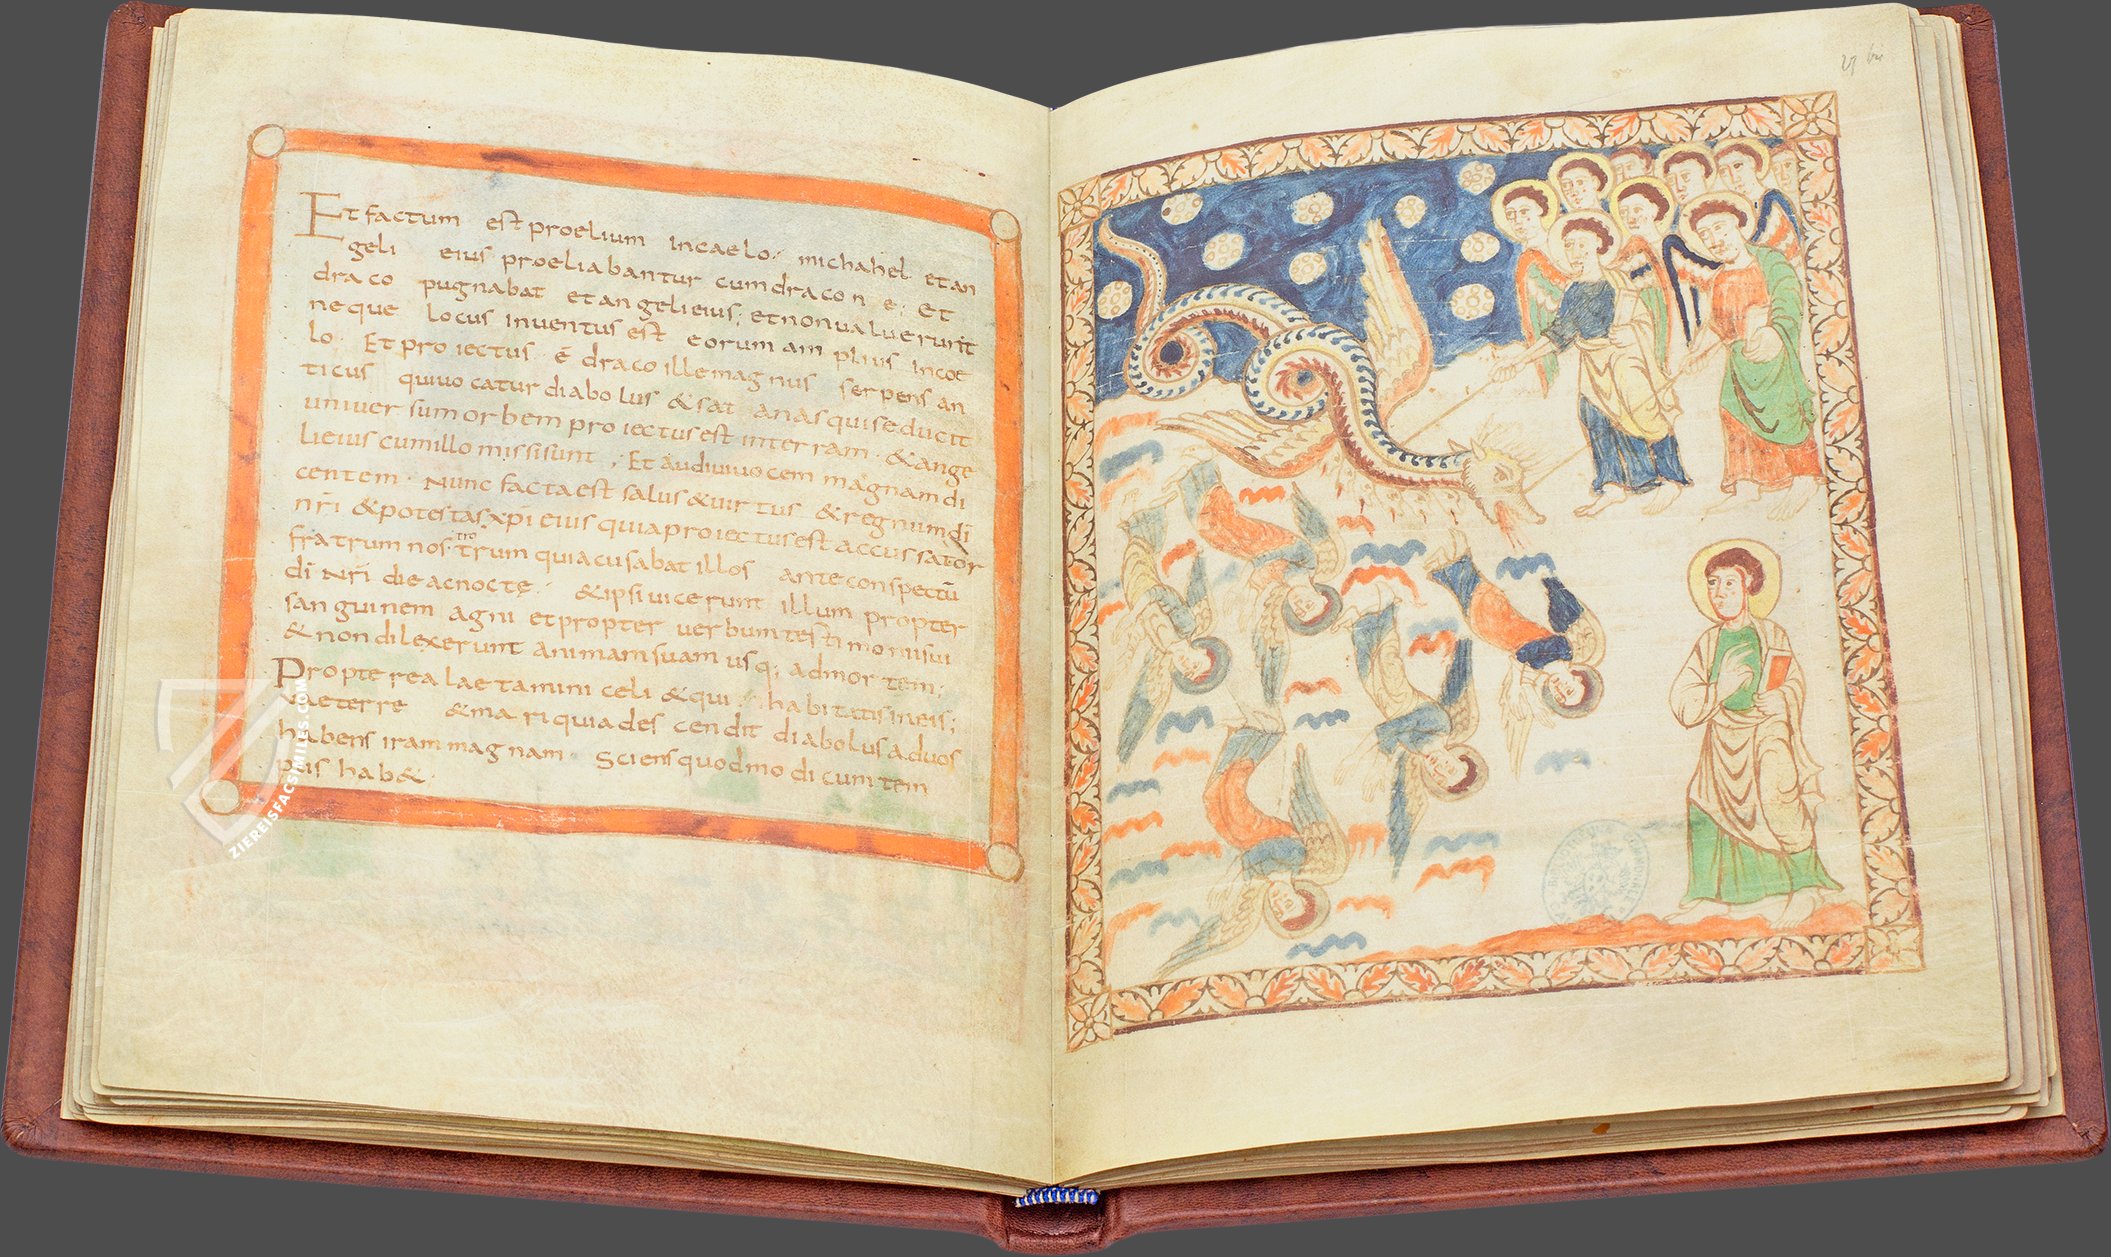 Et factum est proelium incaelo; michahel et an
geli eius proeliabantur cumdracon e; et
draco pugnabat et angelieius; etnonualuerunt
neque locus inuentus est eorum am plius incoe
lo. Et pro iectus · ē draco illemagnus serpens an
ticus quiuo catur diabo lus & sat anas quiseducit
uniuer sum orbem pro iectusest inter ram · & ange
lieius cumillo missisunt ; Et audiuiuocem magnam di
centem · Nunc factaest salus & uir tus & regnum dī
nr̄i & potestas xp̄i eius quiaproiectusest accussator
fratrum nos trorum quiacusabat illos ante conspectū
dī Nr̄i die acnocte · & ipsi uicerunt illum propter
san guinem agni et propter uerbum testi monii sui
& non dilexerunt animam suam usq; admor tem;
Propterea laetamini celi & qui · habitatis ineis;
uaeterre & ma ri quia des cendit diabolus aduos
habens iram mag nam · Sciens quod mo di cum tem
pus hab& ·
ZIEREISFACSIMILES.COM